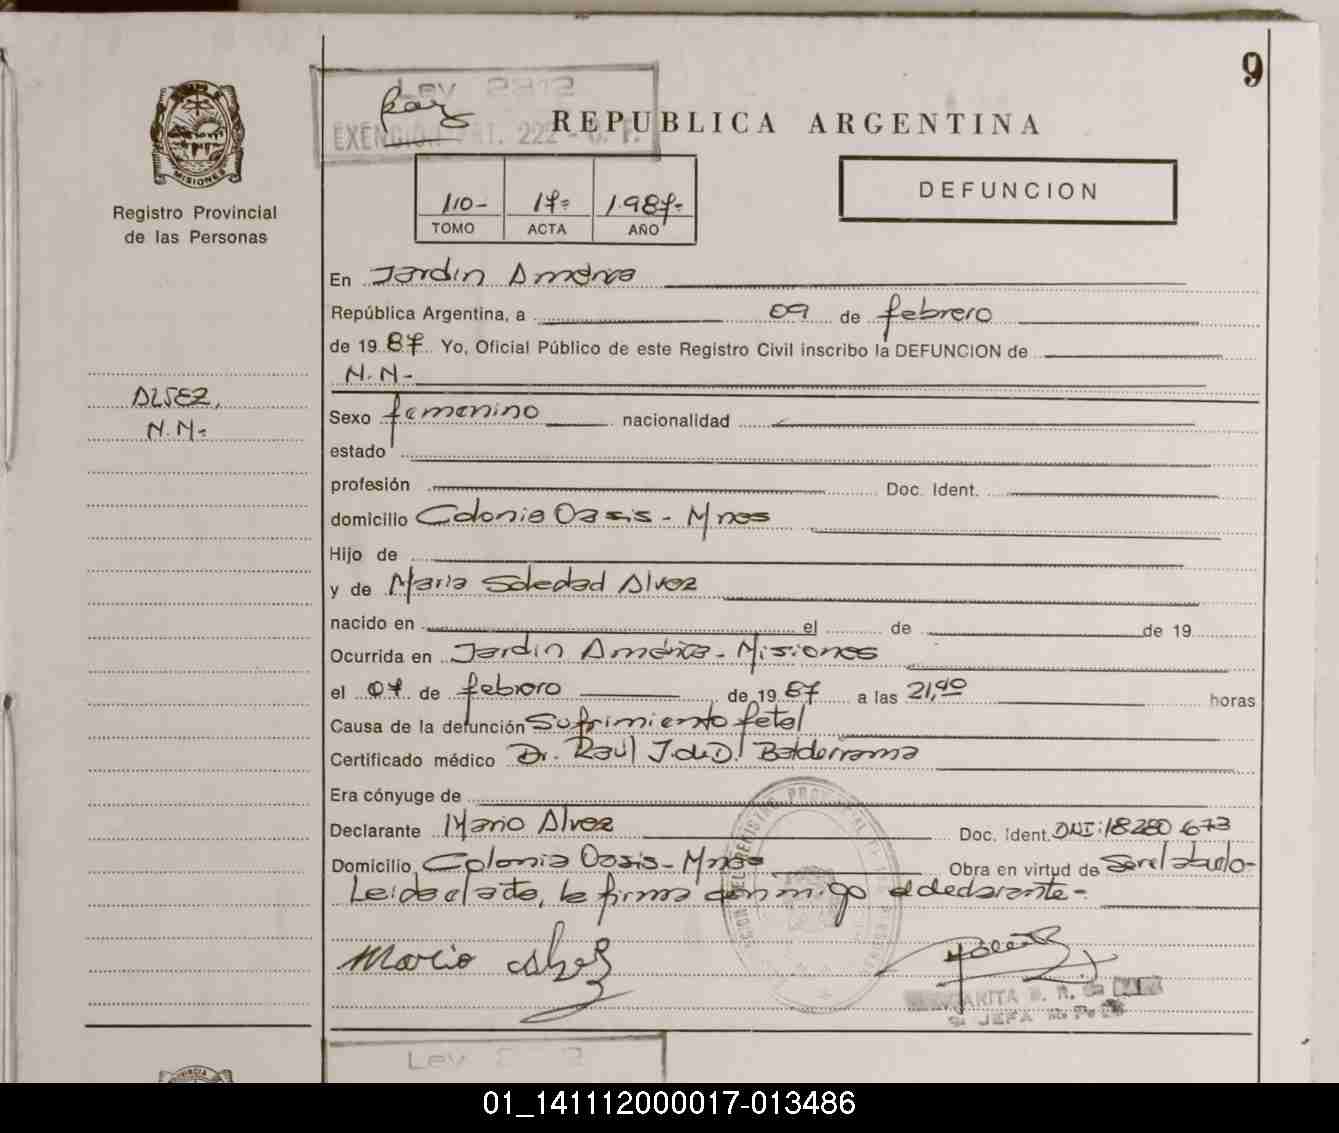 9
Ley 2912
EXENCION ART. 222 - C. F.
REPUBLICA ARGENTINA
MISIONES
Registro Provincial
de las Personas
110- 17= 1.987=
TOMO ACTA AÑO
DEFUNCION
En Jardín América
República Argentina, a 09 de febrero
de 19 87 Yo, Oficial Público de este Registro Civil inscribo la DEFUNCION de
N.N-
ALVEZ,
N.N=
Sexo femenino nacionalidad
estado
profesión Doc. Ident.
domicilio Colonia Oasis - Mnes
Hijo de
y de María Soledad Alvez
nacido en el de de 19
Ocurrida en Jardín América - Misiones
el 07 de febrero de 19 87 a las 21,40 horas
Causa de la defunción Sufrimiento fetal
Certificado médico Dr. Raúl J. de D. Balderrama
Era cónyuge de
Declarante Mario Alvez Doc. Ident. DNI: 18.280.673
Domicilio Colonia Oasis - Mnes Obra en virtud de Ser el abuelo-
Leída el acta, la firma conmigo el declarante=
Mario Alvez
JEFA
Ley
01_141112000017-013486